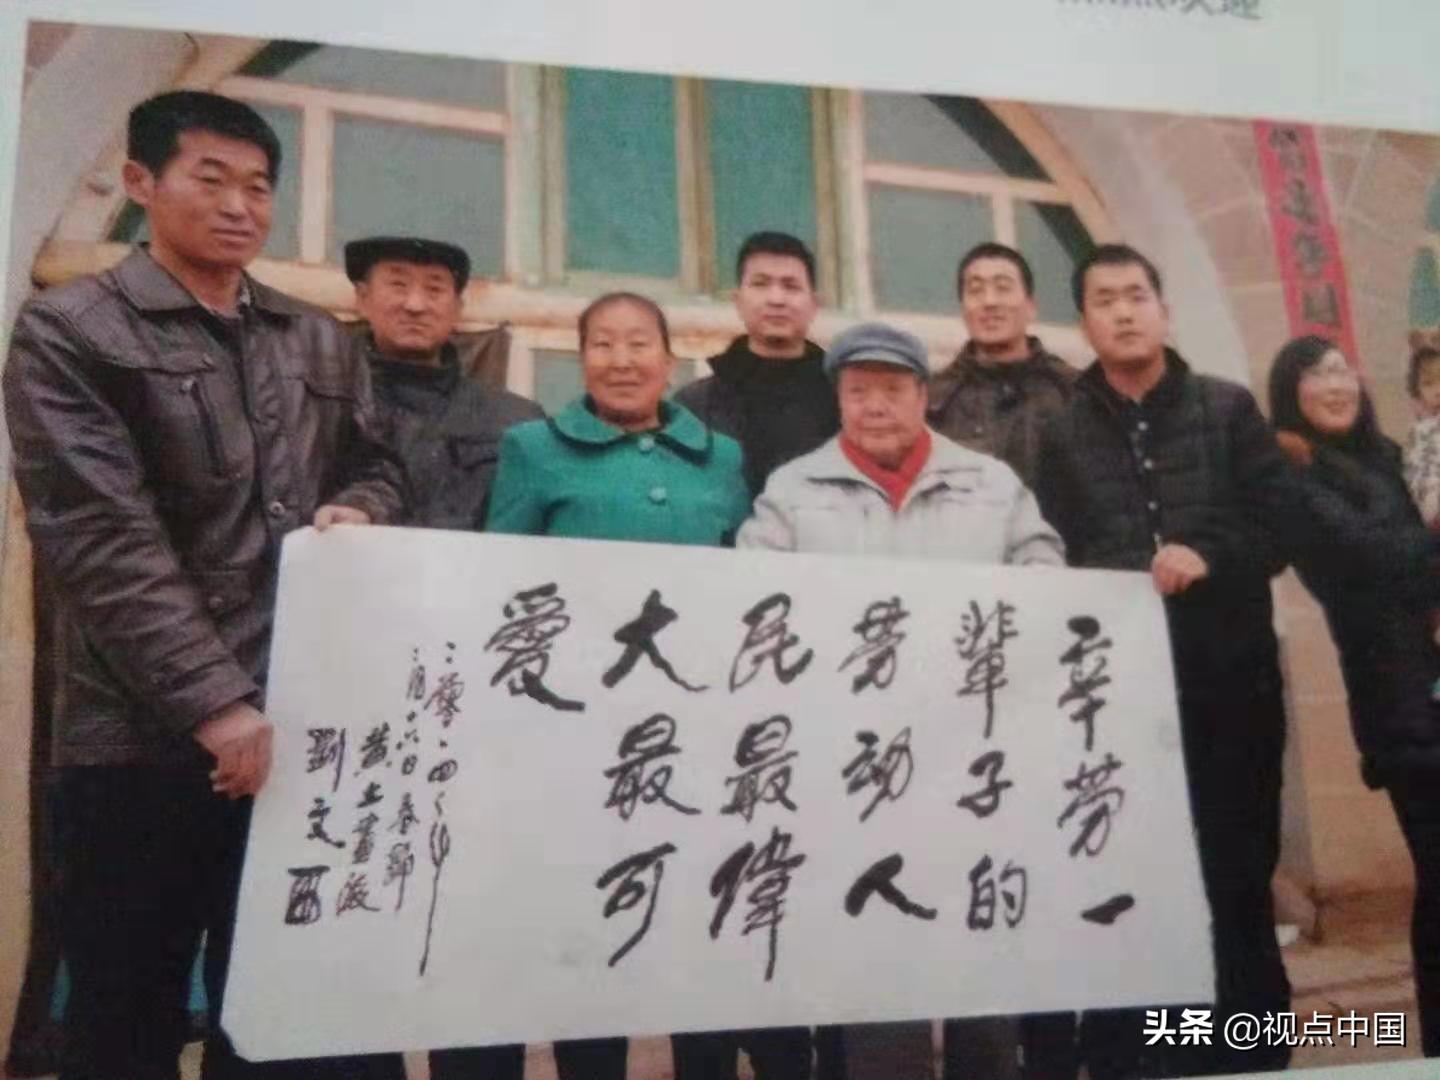 辛劳一
輩子的
劳动人
民最偉
大最可
愛
二零一四年
二月十六日春
黄土畫派
劉文西
头条 @视点中国